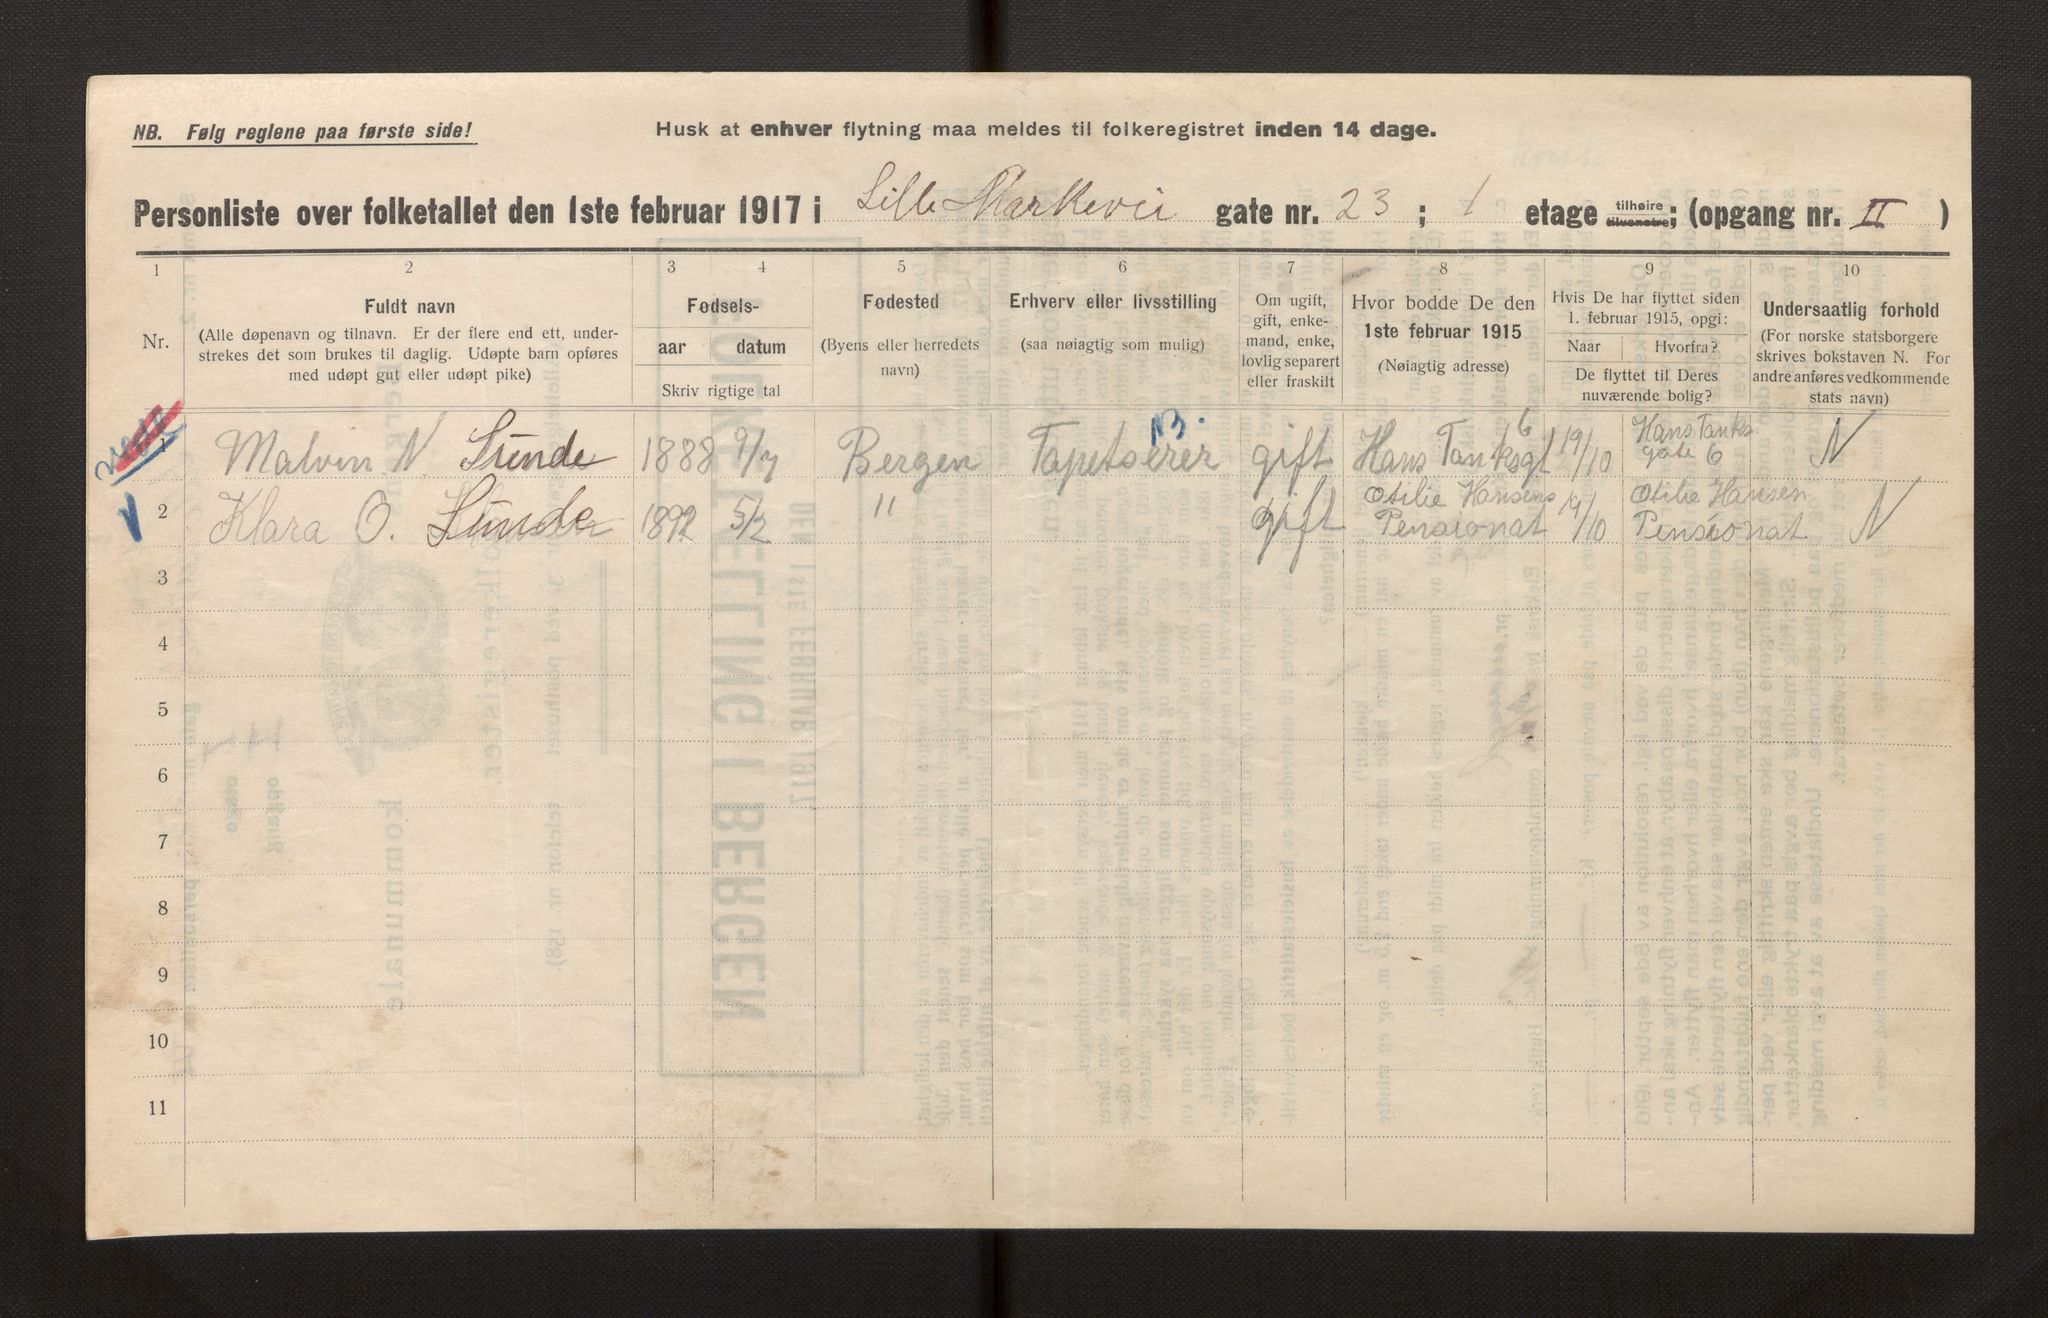 NB. Følg reglene paa første side!
Husk at enhver flytning maa meldes til folkeregistret inden 14 dage.
Personliste over folketallet den 1ste februar 1917 i Lille Markevei gate nr. 23 ; 1 etage tilhøire tilvenstre; (opgang nr. II )
1 2 3 4 5 6 7 8 9 10
Nr.
Fuldt navn
(Alle døpenavn og tilnavn. Er der flere end ett, under-
strekes det som brukes til daglig. Udøpte barn opføres
med udøpt gut eller udøpt pike)
Fødsels-
aar datum
Skriv rigtige tal
Fødested
(Byens eller herredets
navn)
Erhverv eller livsstilling
(saa nøiagtig som mulig)
Om ugift,
gift, enke-
mand, enke,
lovlig separert
eller fraskilt
Hvor bodde De den
1ste februar 1915
(Nøiagtig adresse)
Hvis De har flyttet siden
1. februar 1915, opgi:
Naar Hvorfra?
De flyttet til Deres
nuværende bolig?
Undersaatlig forhold
(For norske statsborgere
skrives bokstaven N. For
andre anføres vedkommende
stats navn)
1 Malvin N. Sunde 1888 9/7 Bergen Tapetserer B. gift Hans Tanksgt 6 19/10 Hans Tanks gate 6 N
2 Klara O. Sunde 1892 5/2 " gift Otilie Hansens Pensionat 19/10 Otilie Hansen Pensionat N
3
4
5
6
7
8
9
10
11